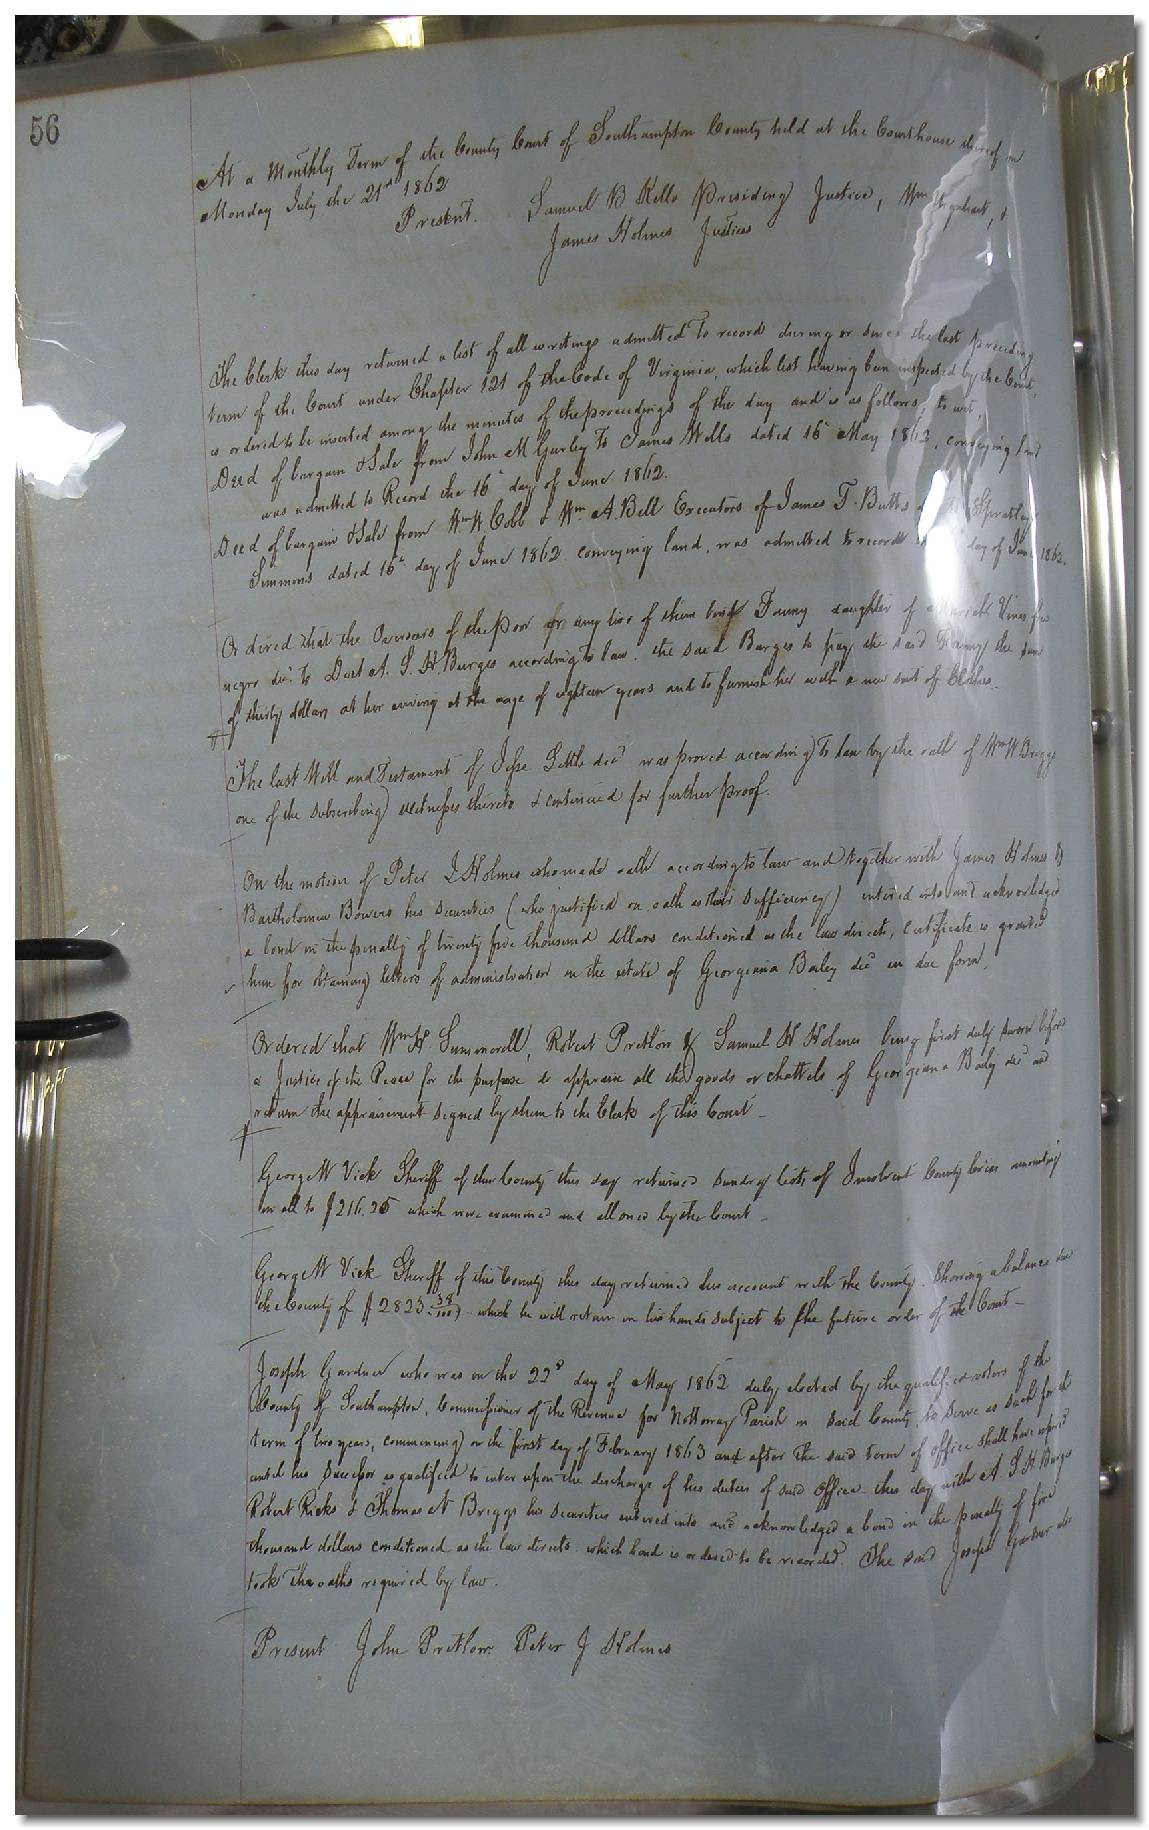 56
At a Monthly Term of the County Court of Southampton County held at the Courthouse thereof on
Monday July the 21st 1862
Present. Samuel B Kello Presiding Justice, Wm Urquhart, &
James Holmes Justices
The Clerk this day returned a list of all writings admitted to record during or since the last preceding
term of the Court under Chapter 121 of the Code of Virginia, which list having been inspected by the Court,
is ordered to be inserted among the minutes of the proceedings of the day and is as follows, to wit,
Deed of bargain & Sale from John M Gurley To James Wells dated 16th May 1862, conveying land
was admitted to Record the 16th day of June 1862.
Deed of bargain & Sale from Wm W Cobb & Wm A. Bell Executors of James T. Butts Spratley
Simmons dated 16th day of June 1862 conveying land, was admitted to record day of June 1862.
Ordered that the Overseers of the Poor or any two of them bind Fanny daughter of Mariah Vines free
negro decd to Doct A. S. H. Burges according to law. the said Burges to pay the said Fanny the sum
of thirty dollars at her arriving at the age of eighteen years and to furnish her with a new suit of Clothes.
The last Will and Testament of Jesse Little decd was proved according to law by the oath of Wm W Briggs
one of the subscribing witnesses thereto & continued for further proof.
On the motion of Peter J Holmes who made oath according to law and together with James Holmes &
Bartholomew Bowers his securities (who justified on oath as their sufficiency) entered into and acknowledged
a bond in the penalty of twenty five thousand dollars conditioned as the law directs, Certificate is granted
him for obtaining letters of administration on the estate of Georgeiana Bailey decd in due form.
Ordered that Wm H Summerell, Robert Pretlow & Samuel H Holmes being first duly sworn before
a Justice of the Peace for the purpose do appraise all the goods or chattels of Georgeiana Baily decd and
return the appraisement signed by them to the Clerk of this Court
George W Vick Sheriff of this County this day returned sundry lists of Insolvent County levies amounting
in all to $216.25 which were examined and allowed by the Court
George W Vick Sheriff of this County this day returned his account with the County. Showing a balance due
the County of $2825.38/100 which he will retain in his hands subject to the future order of the Court
Joseph Gardner who was on the 22d day of May 1862 duly elected by the qualified voters of the
County of Southampton, Commissioner of the Revenue for Nottoway Parish in said County, to serve as such for the
term of two years, commencing on the first day of February 1863 and after the said term of office shall have expired
until his Successor is qualified to enter upon the discharge of his duties of said office. this day with A. S H Burges
Robert Ricks & Thomas N Briggs his securities entered into and acknowledged a bond in the penalty of five
thousand dollars conditioned as the law directs. which bond is ordered to be recorded. The said Joseph Gardner also
took the oaths required by law.
Present John Pretlow Peter J Holmes